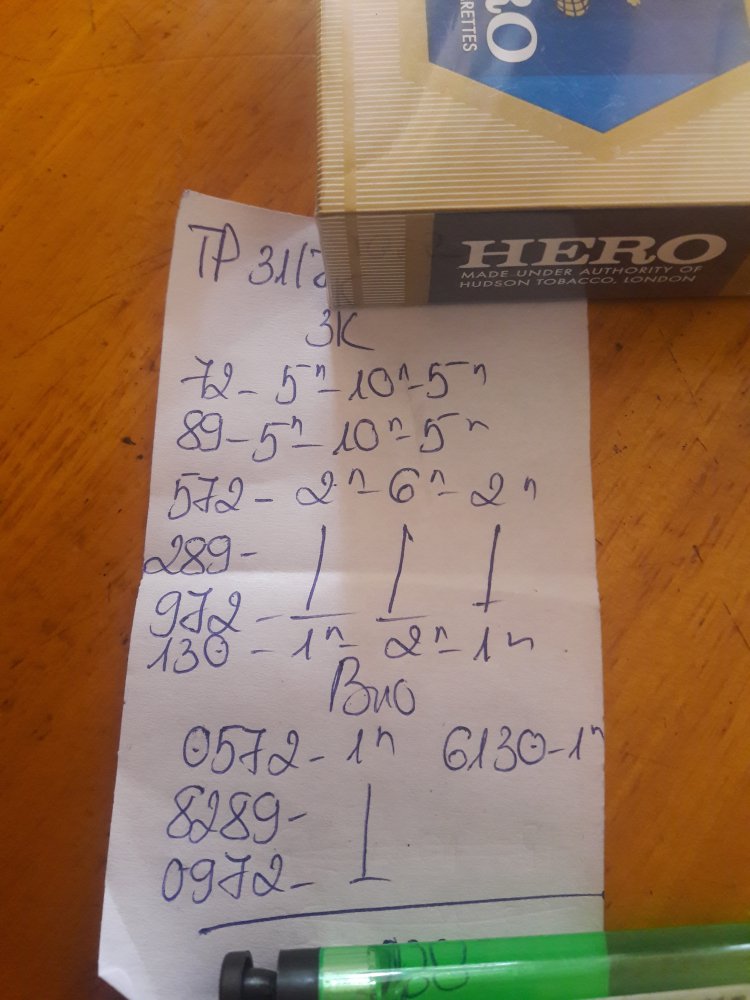 RO
ARETTES
HERO
MADE UNDER AUTHORITY OF
HUDSON TOBACCO, LONDON
TP 31/7
3K
72 - 5ⁿ - 10ⁿ - 5ⁿ
89 - 5ⁿ - 10ⁿ - 5ⁿ
572 - 2ⁿ - 6ⁿ - 2ⁿ
289 -
972 -
130 - 1ⁿ - 2ⁿ - 1ⁿ
Bao
0572 - 1ⁿ 6130 - 1ⁿ
8289 -
0972 -